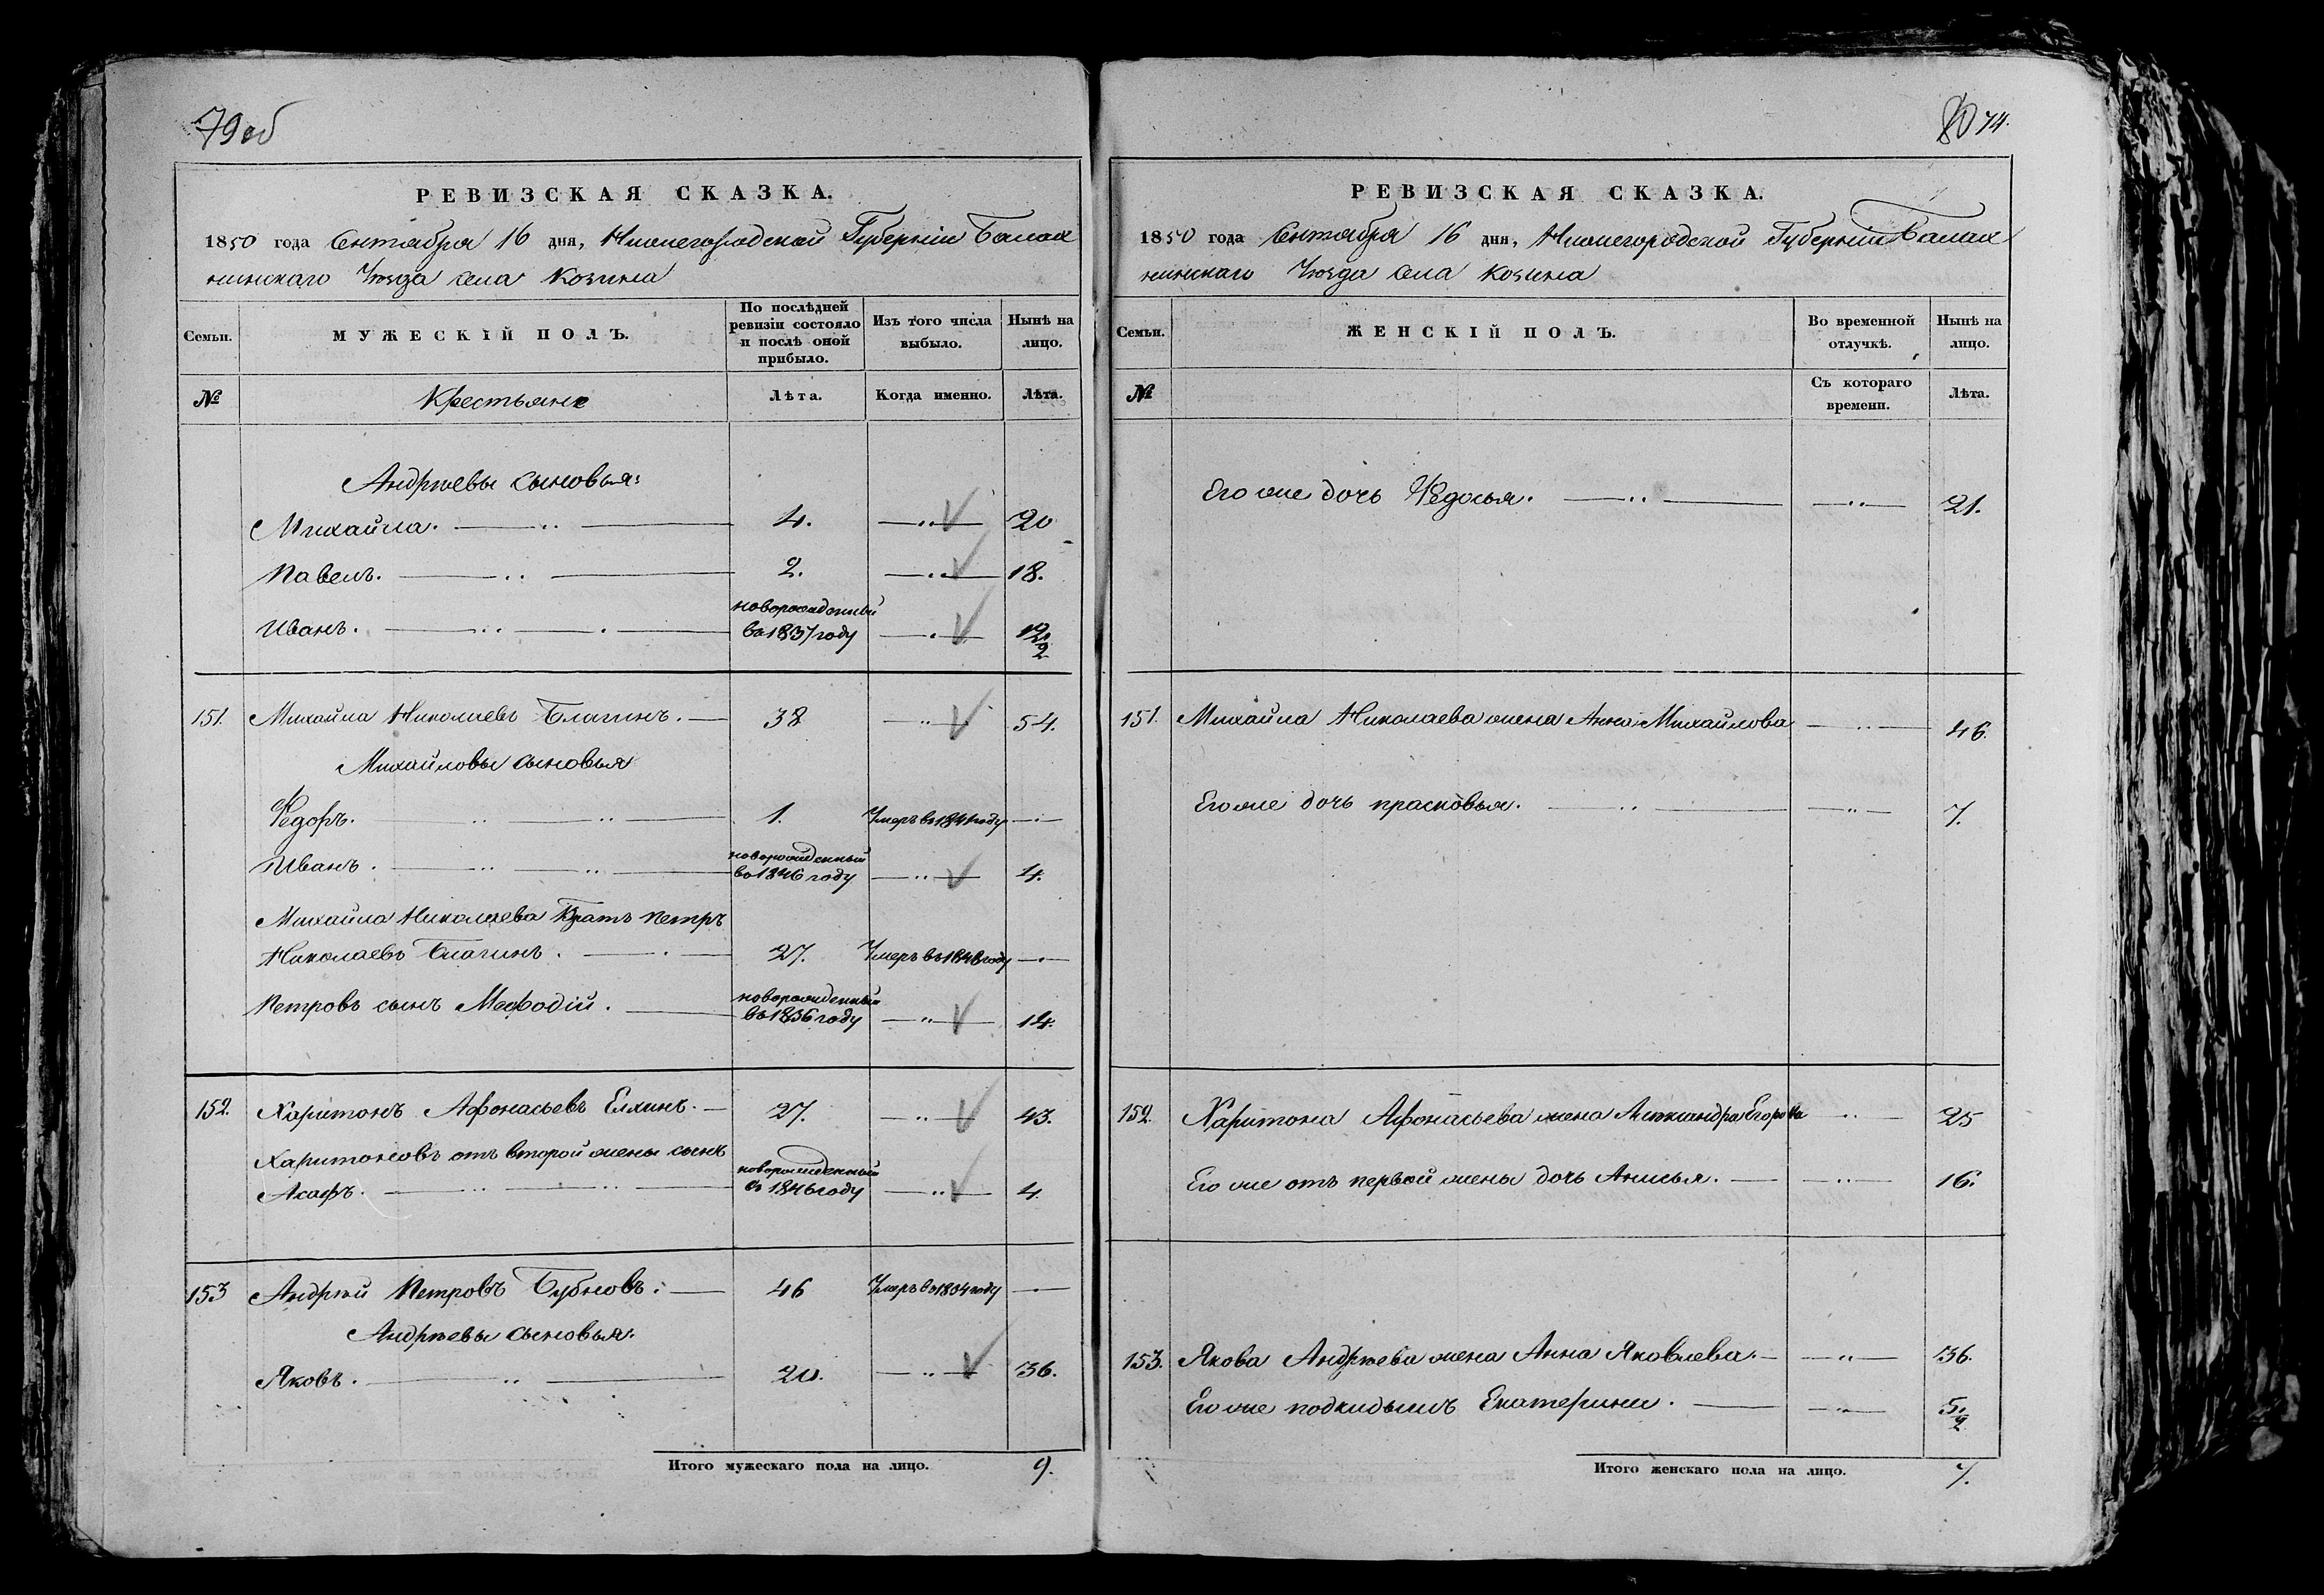 79 об
РЕВИЗСКАЯ СКАЗКА.
1850 года Сентября 16 дня, Нижегородской Губернiи Балах
нинскаго Уѣзда села Козина
Семьи.
МУЖЕСКIЙ ПОЛЪ.
По послѣдней ревизiи состояло и послѣ оной прибыло.
Изъ того числа выбыло.
Нынѣ на лицо.
№
Крестьяне
Лѣта.
Когда именно.
Лѣта.
Андрѣевы сыновья:
Михайла. 4. 20
Павелъ. 2. 18.
Иванъ. новорожденный въ 1837 году 12 1/2
151. Михайла Николаевъ Благинъ. 38 54.
Михайловы сыновья
Федоръ. 1. Умеръ въ 1841 году
Иванъ. новорожденный въ 1846 году 4.
Михайла Николаева Братъ Петръ
Николаевъ Благинъ. 27. Умеръ въ 1848 году
Петровъ сынъ Мефодiй. новорожденный въ 1836 году 14.
152. Харитонъ Афонасьевъ Елхинъ. 27. 43.
Харитоновъ отъ второй жены сынъ
Асафъ. новорожденный въ 1846 году 4.
153 Андрѣй Петровъ Бубновъ: 46 Умеръ въ 1834 году
Андрѣевы сыновья:
Яковъ. 20. 36.
Итого мужескаго пола на лицо. 9.
80 74.
РЕВИЗСКАЯ СКАЗКА.
1850 года Сентября 16 дня, Нижегородской Губернiи Балах
нинскаго Уѣзда села Козина
Семьи.
ЖЕНСКIЙ ПОЛЪ.
Во временной отлучкѣ.
Нынѣ на лицо.
№
Съ котораго времени.
Лѣта.
Его же дочь Федосья. 21.
151. Михайла Николаева жена Анна Михайлова 46.
Его же дочь Прасковья. 7.
152. Харитона Афонасьева жена Александра Егорова 25
Его же отъ первой жены дочь Анисья. 16.
153. Якова Андрѣева жена Анна Яковлева. 36.
Его же подкидышъ Екатерина. 5 1/2
Итого женскаго пола на лицо. 7.